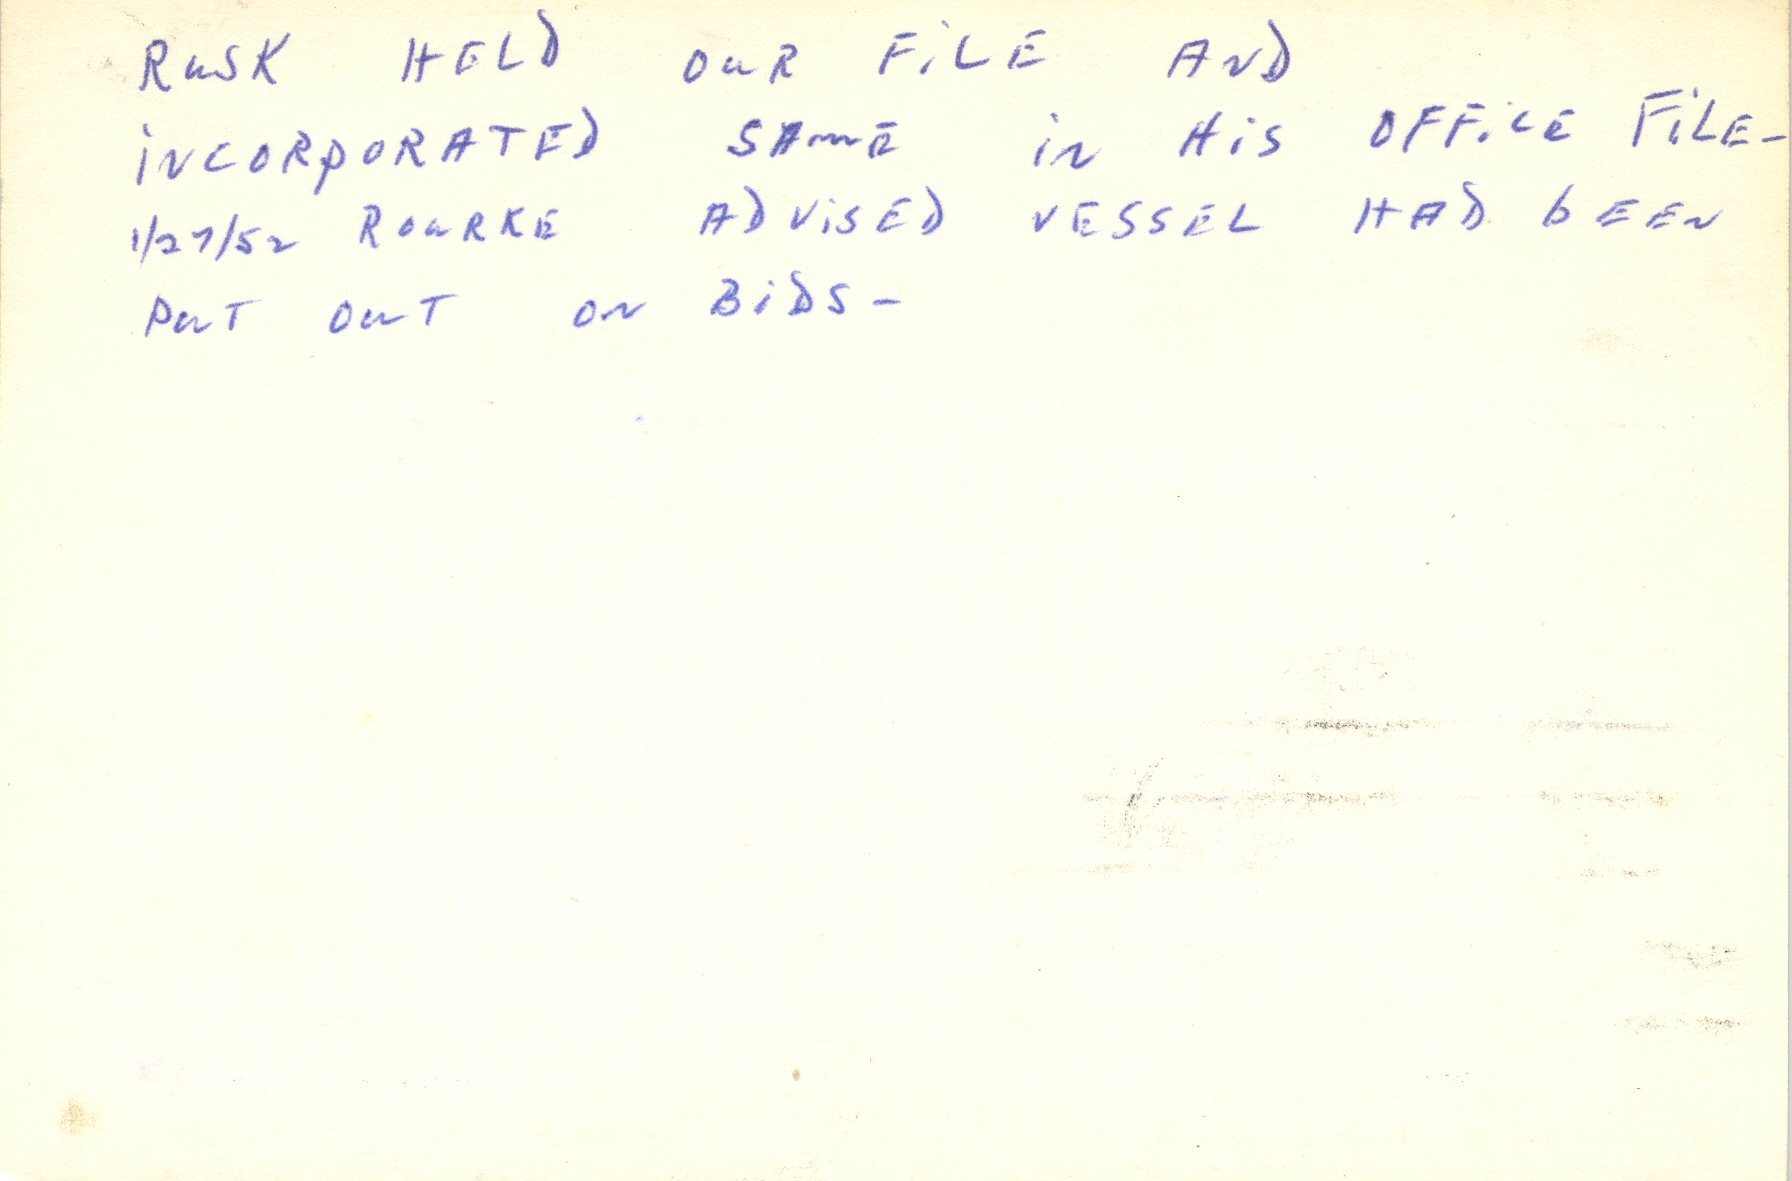 RUSK HELD OUR FILE AND
INCORPORATED SAME IN HIS OFFICE FILE-
1/27/52 ROURKE ADVISED VESSEL HAD BEEN
PUT OUT ON BIDS-